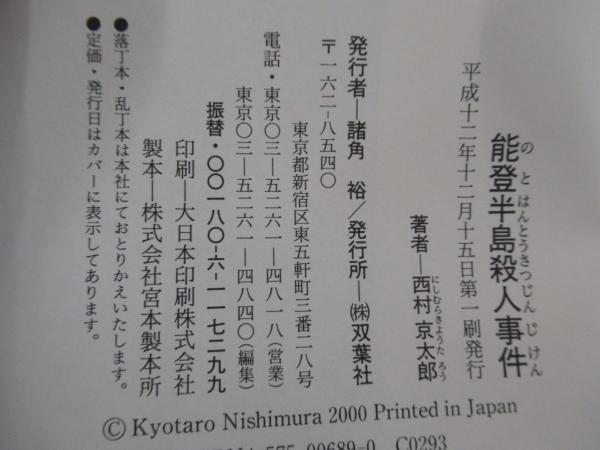 能登半島殺人事件
のとはんとうさつじんじけん
平成十二年十二月十五日第一刷発行
著者―西村京太郎
にしむらきょうたろう
発行者―諸角　裕/発行所―㈱双葉社
〒一六二-八五四〇
東京都新宿区東五軒町三番二八号
電話・東京〇三―五二六一―四八一八(営業)
東京〇三―五二六一―四八四〇(編集)
振替・〇〇一八〇-六-一一七二九九
印刷―大日本印刷株式会社
製本―株式会社宮本製本所
●落丁本・乱丁本は本社にておとりかえいたします。
●定価・発行日はカバーに表示してあります。
© Kyotaro Nishimura 2000 Printed in Japan
575-00689-0 C0293